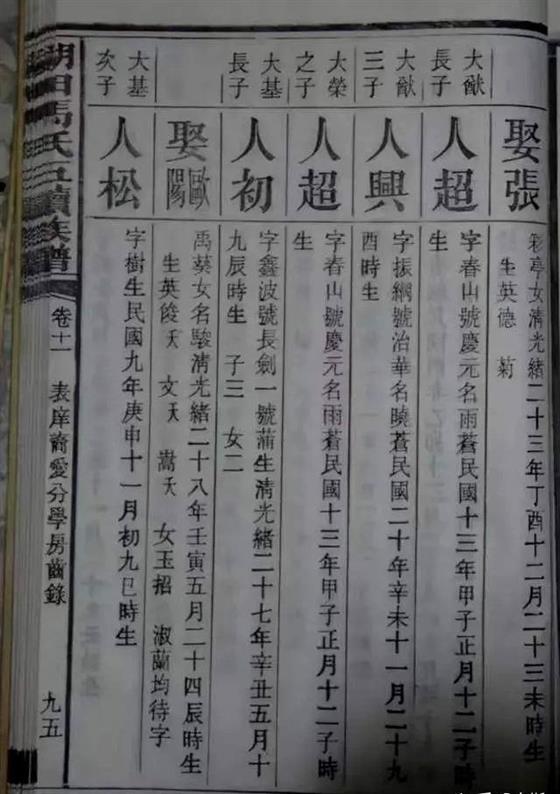 娶張
彩亭女清光緒二十三年丁酉十二月二十三未時生
生英德 菊
大猷
長子
人超
字春山號慶元名雨蒼民國十三年甲子正月十二子時
生
大猷
三子
人興
字振綱號治華名曉蒼民國二十年辛未十一月二十九
酉時生
大榮
之子
人超
字春山號慶元名雨蒼民國十三年甲子正月十二子時
生
大基
長子
人初
字鑫波號長劍一號蒲生清光緒二十七年辛丑五月十
九辰時生 子三 女二
娶歐陽
禹葵女名駿清光緒二十八年壬寅五月二十四辰時生
生英俊夭 文夭 嵩夭 女玉招 淑蘭均待字
大基
次子
人松
字樹生民國九年庚申十一月初九巳時生
馬氏五續族譜
卷十一
表庠裔愛分學房齒錄
九五